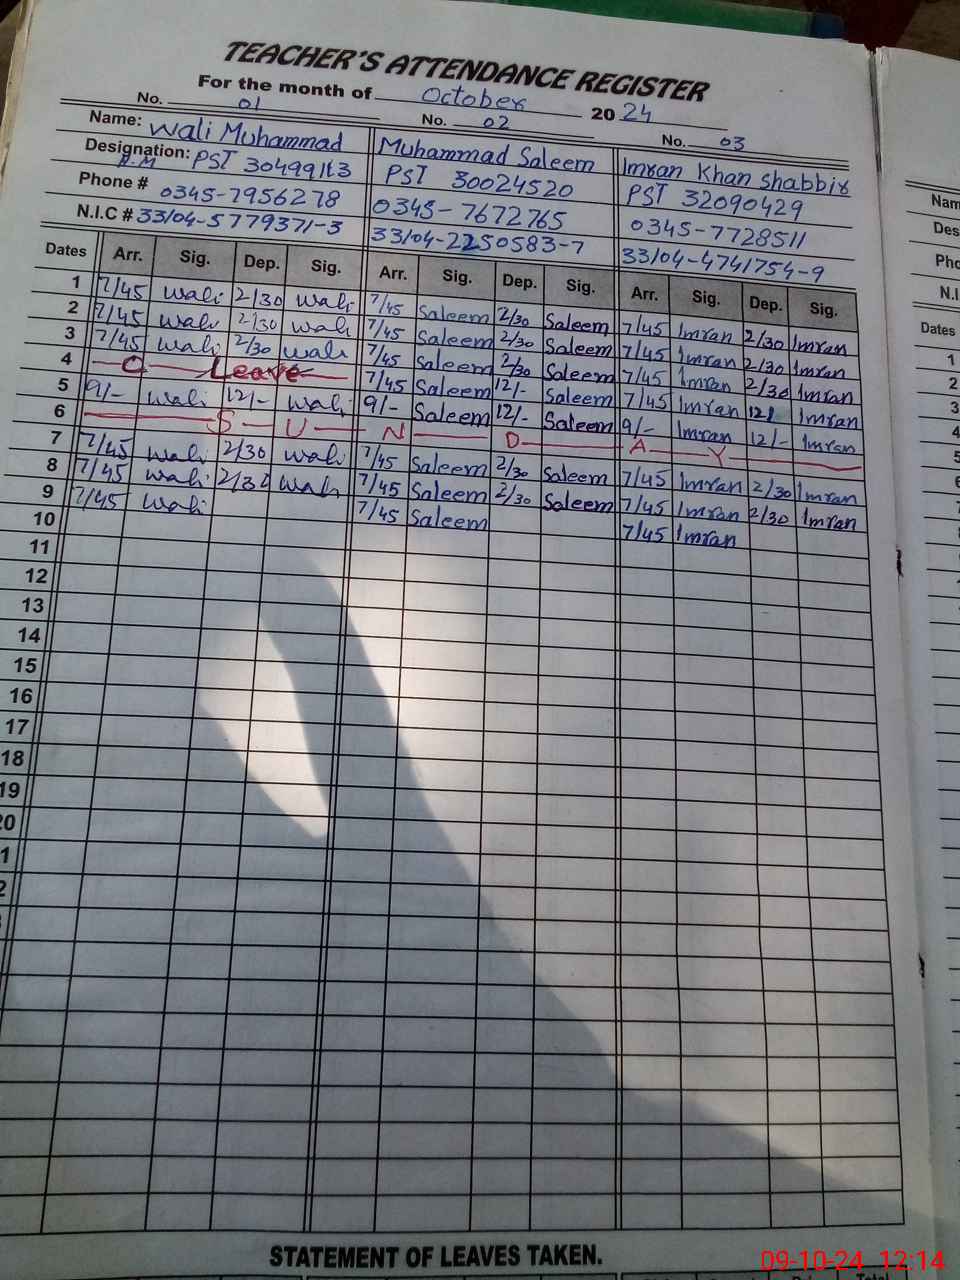 TEACHER'S ATTENDANCE REGISTER
For the month of October 2024
No. 01 No. 02 No. 03
Name: Wali Muhammad Muhammad Saleem Imran Khan Shabbir
Designation: H.M PST 30499163 PST 30024520 PST 32090429
Phone # 0345-7956278 0345-7672765 0345-7728511
N.I.C # 33104-5779371-3 33104-2250583-7 33104-4741754-9
Dates Arr. Sig. Dep. Sig. Arr. Sig. Dep. Sig. Arr. Sig. Dep. Sig.
1 7/45 Wali 2/30 Wali 7/45 Saleem 2/30 Saleem 7/45 Imran 2/30 Imran
2 7/45 Wali 2/30 Wali 7/45 Saleem 2/30 Saleem 7/45 Imran 2/30 Imran
3 7/45 Wali 2/30 Wali 7/45 Saleem 2/30 Saleem 7/45 Imran 2/30 Imran
4 C Leave 7/45 Saleem 12/- Saleem 7/45 Imran 12/ Imran
5 9/- Wali 12/- Wali 9/- Saleem 12/- Saleem 9/- Imran 12/- Imran
6 S U N D A Y
7 7/45 Wali 2/30 Wali 7/45 Saleem 2/30 Saleem 7/45 Imran 2/30 Imran
8 7/45 Wali 2/30 Wali 7/45 Saleem 2/30 Saleem 7/45 Imran 2/30 Imran
9 7/45 Wali 7/45 Saleem 7/45 Imran
10
11
12
13
14
15
16
17
18
19
20
STATEMENT OF LEAVES TAKEN.
09-10-24 12:14
Dates
1
2
3
4
5